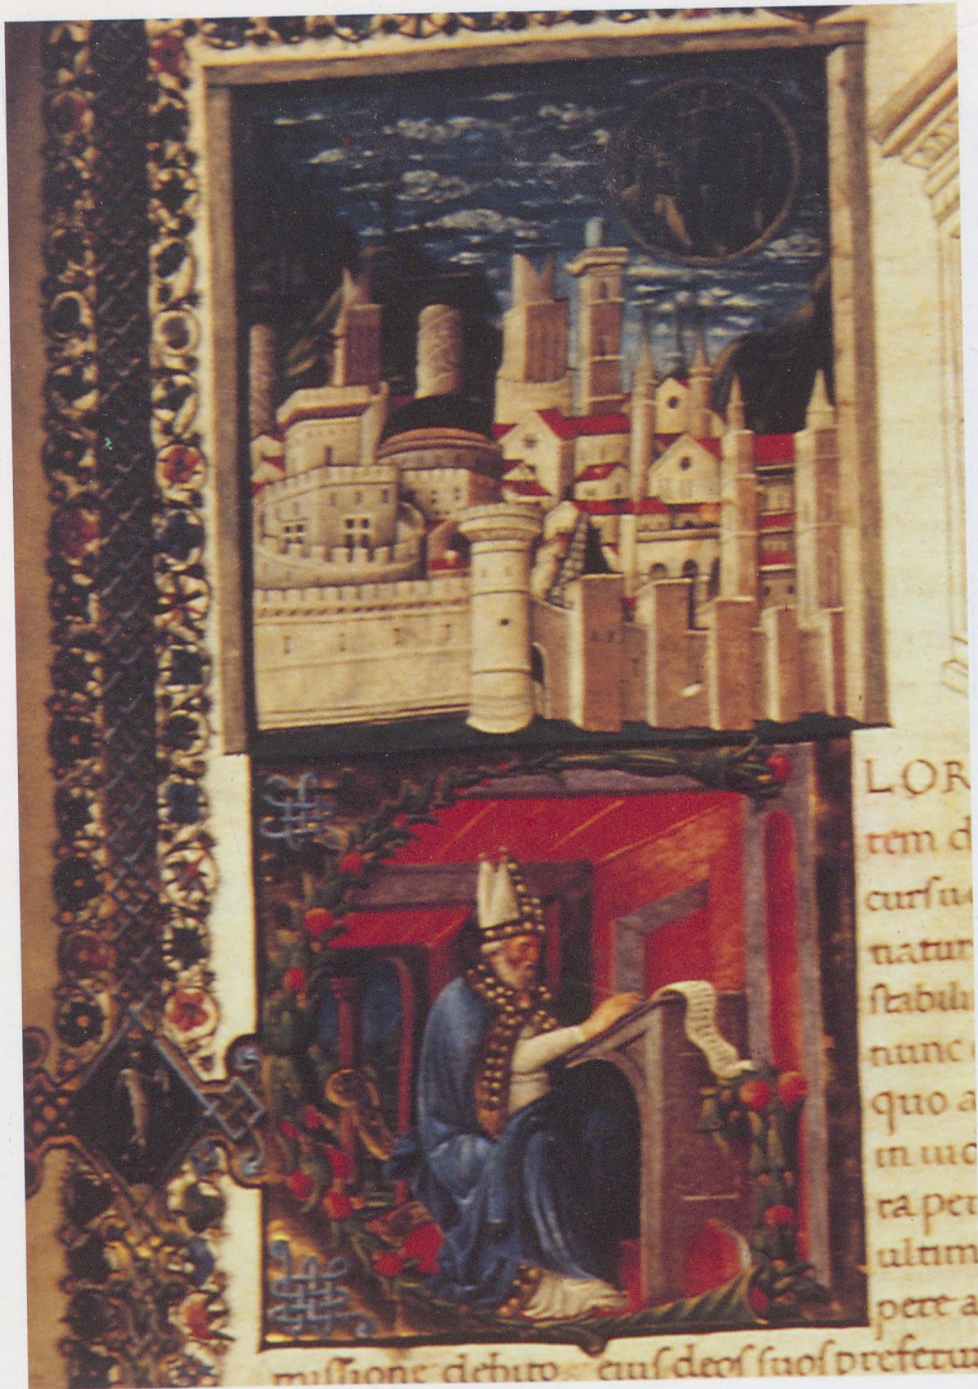 LOR
rem d
cursu
natur
stabili
nunc
quo a
in uic
ra per
ultim
pere a
missione debito eius deos suos prefetu